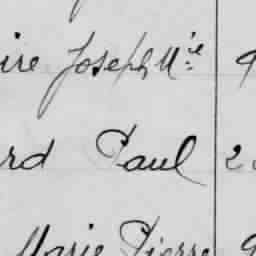 ire Joseph M.ie 9
rd Paul 2
Marie Pierre 9